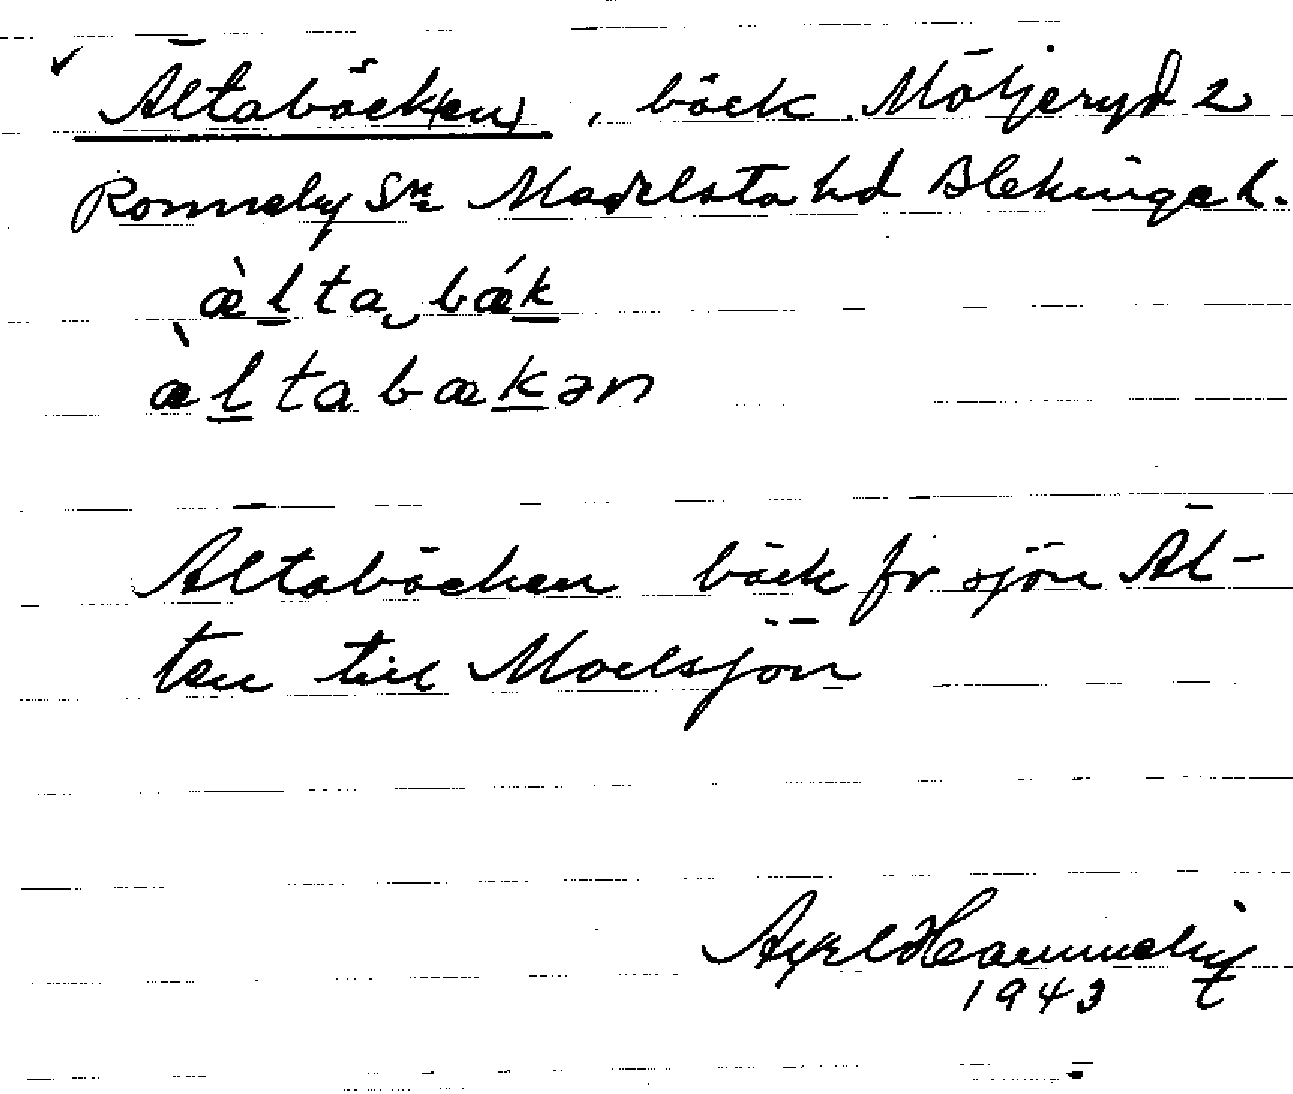 ✓ Ältabäck(en), bäck Möljeryd 2
Ronneby Sn Medelsta hd Blekinge l.
æ̀l̠ta‿bǽk̠
æ̀l̠tabæk̠ən
Ältabäcken bäck fr sjön Äl-
ten till Moelsjön
Axel
1943